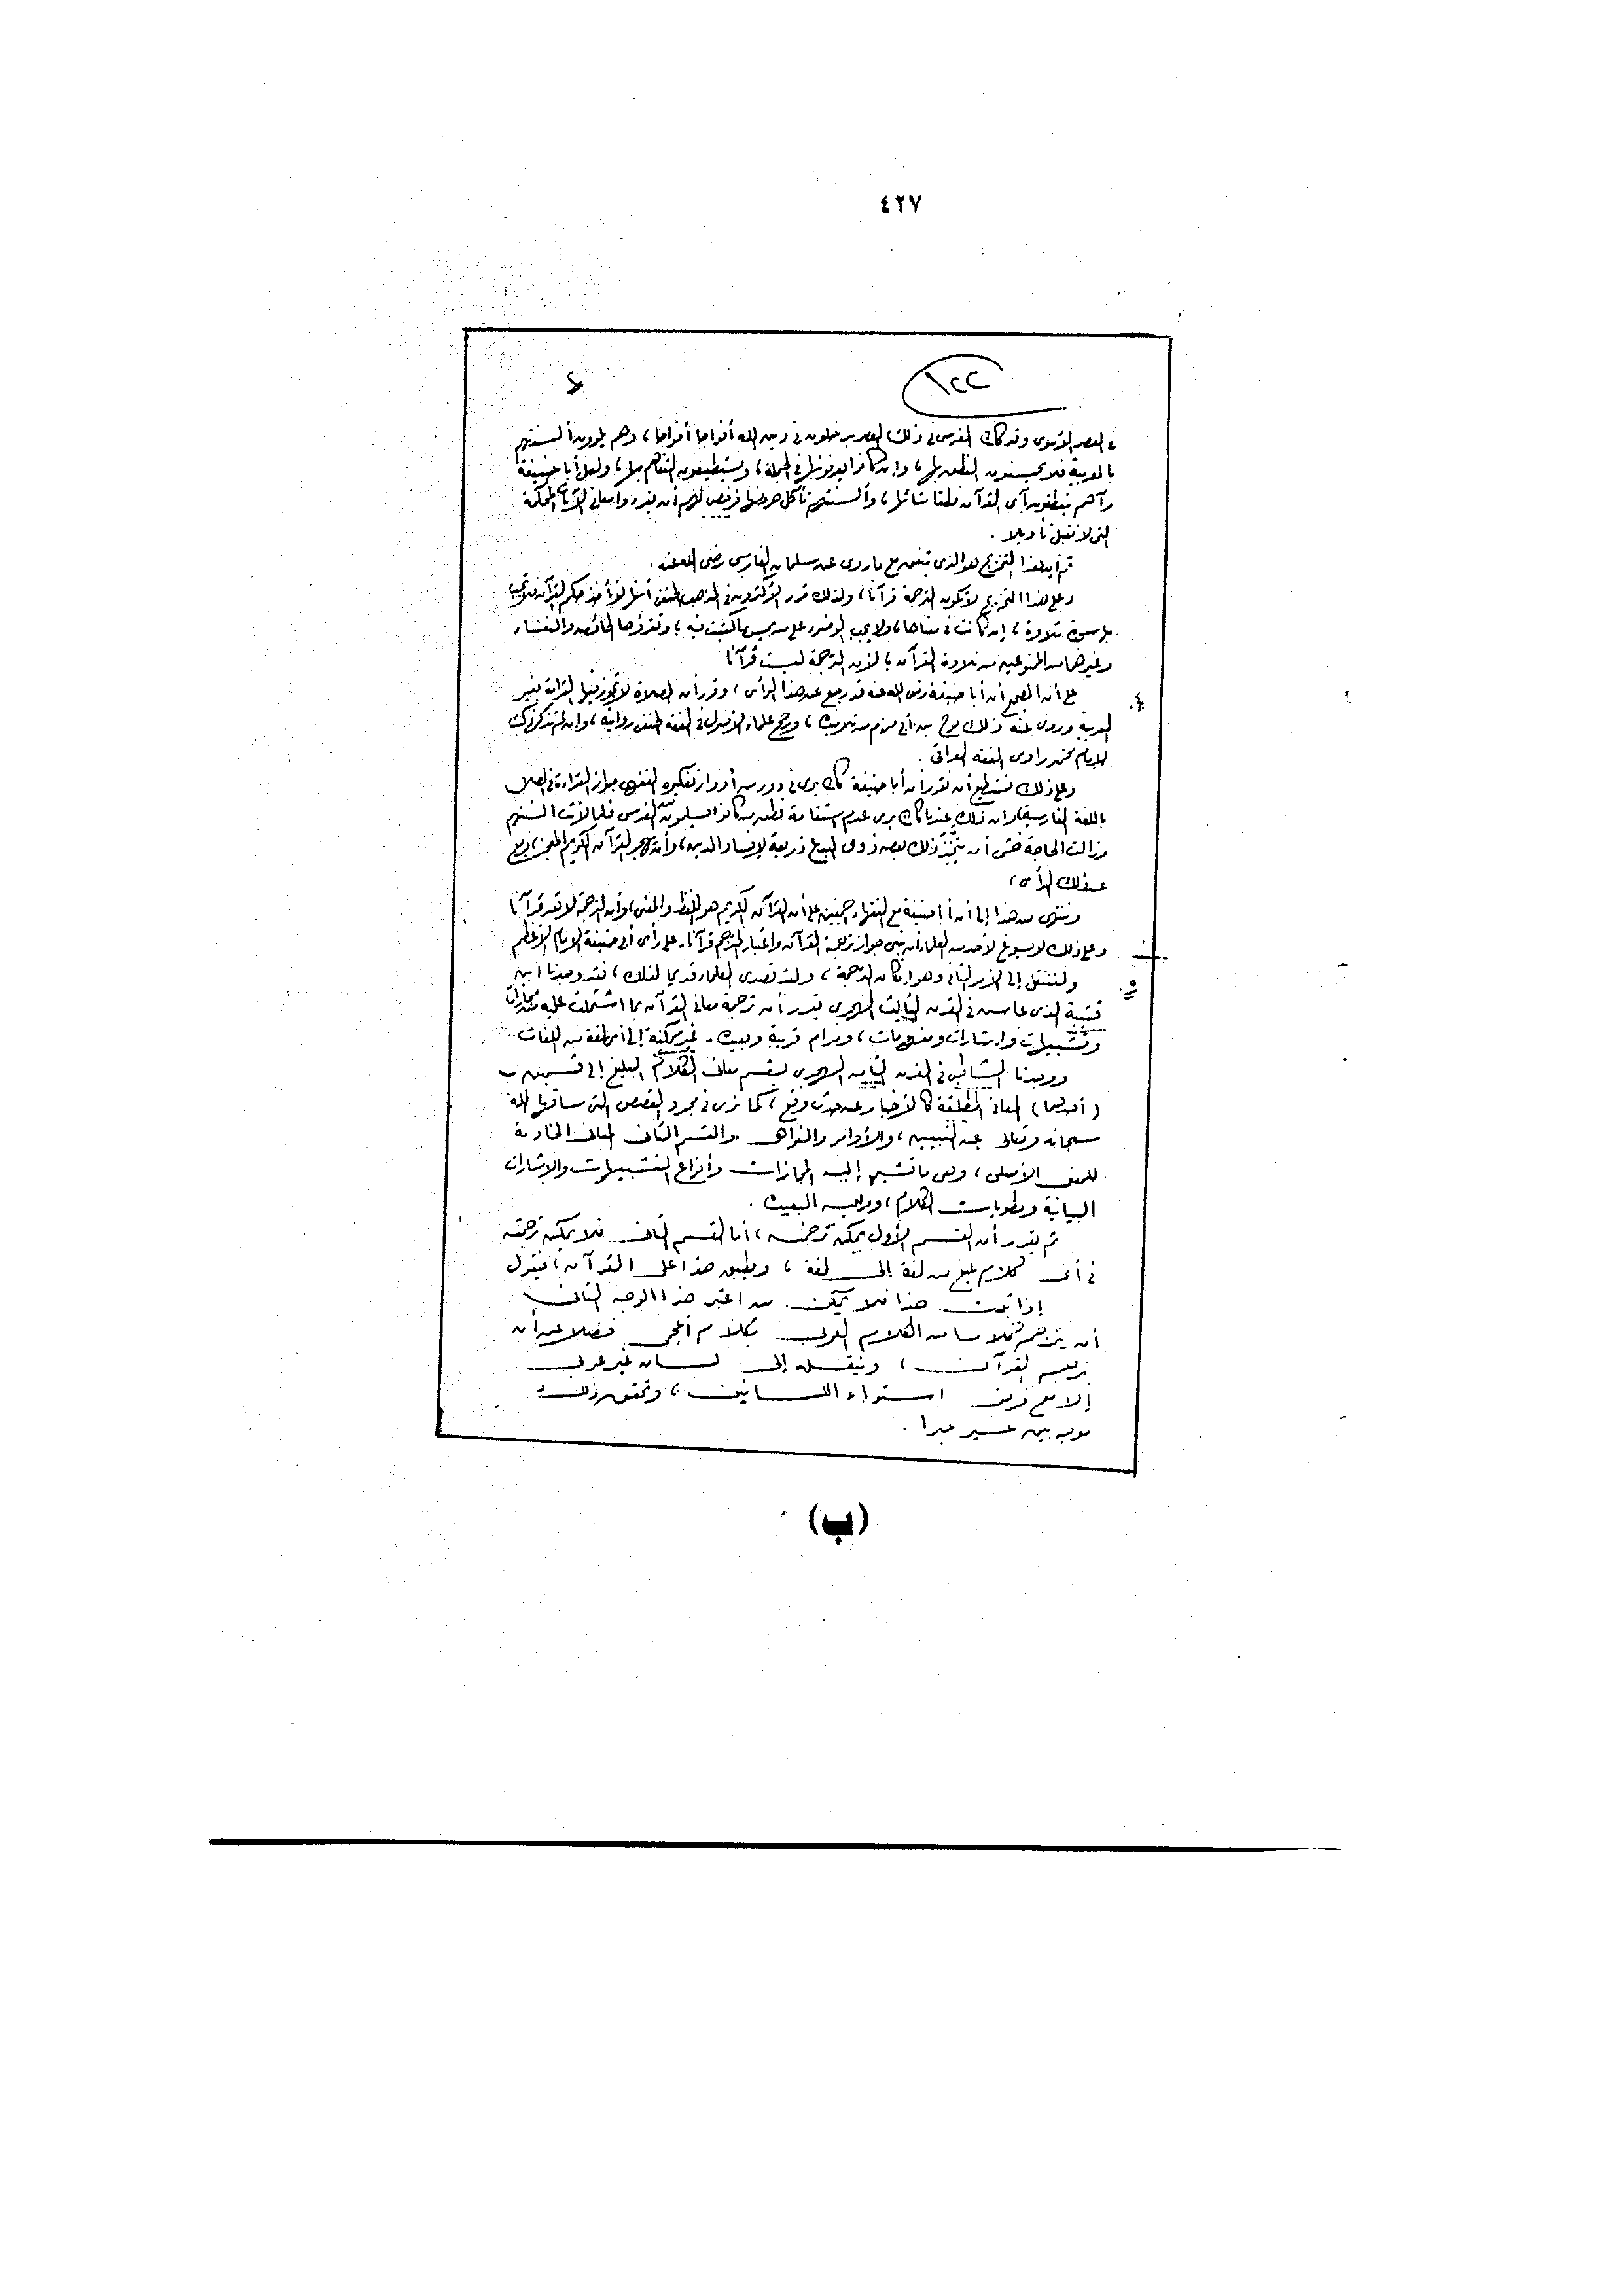 ٤٢٧
١٢٢
فى العصر الأموى وقد كان الفرس فى ذلك العصر يدخلون فى دين الله أفواجا أفواجا، وهم يلوون ألسنتهم
بالعربية فلا يحسنون النطق بها، وإن كانوا يعرفونها فى الجملة، ويستطيعون التفاهم بها، ولعل أبا حنيفة
رآهم ينطقون بآى القرآن نطقا شائها، وألسنتهم تأكل حروفها فرخص لهم أن يقرءوا معانى الآيات المحكمة
التى لا تقبل تأويلا .
ثم إن هذا التخريج هو الذى يتفق مع ما روى عن سلمان الفارسى رضى الله عنه .
وعلى هذا التخريج لا تكون الترجمة قرآنا، ولذلك قرر الأكثرون فى المذهب الحنفى أنها لا تأخذ حكم القرآن فلا تجب
بها سجدة تلاوة، إن كانت فى معناها، ولا يجب الوضوء على من يمس ما كتبت فيه، وتقرؤها الحائض والنفساء
وغيرهما من الممنوعين من تلاوة القرآن، لأن الترجمة ليست قرآنا
٤
على أن الصحيح أن أبا حنيفة رضى الله عنه قد رجع عن هذا الرأى، وقرر أن الصلاة لا تجوز فيها القراءة بغير
العربية وروى عنه ذلك نوح بن أبى مريم، ورجح علماء الأصول فى الفقه الحنفى روايته، وإن لم تذكر فى كتب
الإمام محمد راوى الفقه العراقى .
وعلى ذلك نستطيع أن نقرر أن أبا حنيفة كان يرى فى دور من أدوار تفكيره الفقهى جواز القراءة فى الصلاة
باللغة الفارسية، وأن ذلك عندما كان يرى عدم استقامة نطق من كانوا يسلمون من الفرس فلما لانت ألسنتهم
وزالت الحاجة خشى أن يتخذ ذلك بعض ذوى البدع ذريعة لإفساد الدين، وأن يهجر القرآن الكريم المعجز، فرجع
عن ذلك الرأى،
وننتهى من هذا إلى أن أبا حنيفة مع الفقهاء أجمعين على أن القرآن الكريم هو اللفظ والمعنى، وأن الترجمة لا تعد قرآنا
وعلى ذلك لا يسوغ لأحد من العلماء أن يبنى جواز ترجمة القرآن واعتبار المترجم قرآنا. على رأى أبى حنيفة الإمام الأعظم
٥
ولننتقل إلى الأمر الثانى وهو إمكان الترجمة، ولقد تصدى العلماء قديما لذلك، فقد وجدنا ابن
قتيبة الذى عاش فى القرن الثالث الهجرى يقرر أن ترجمة معانى القرآن بما اشتملت عليه من مجازات
وتشبيهات وإشارات ومفهومات، ومرام قريبة وبعيدة، غير ممكنة إلى أى لغة من اللغات .
ووجدنا الشاطبى فى القرن الثامن الهجرى يقسم معانى الكلام البليغ إلى قسمين
(أحدهما) المعانى المطلقة كالأخبار عن حدث وقع، كما نرى فى مجرد القصص التى ساقها الله
سبحانه وتعالى عن النبيين، والأوامر والنواهى. والقسم الثانى المعانى الخادمة
للمعنى الأصلى، وهى ما تشير إليه المجازات وأنواع التشبيهات والإشارات
البيانية ومطويات الكلام، ومراميه البعيدة .
ثم يقرر أن القسم الأول يمكن ترجمته، أما القسم الثانى فلا يمكن ترجمته
فى أى كلام بليغ من لغة إلى لغة، ويطبق هذا على القرآن، فيقول
إذا ثبت هذا فلا يمكن من اعتبر هذا الوجه الثانى
أن يترجم كلاما من الكلام العربى بكلام أعجمى فضلا عن أن
يترجم القرآن، وينقله إلى لسان غير عربى
إلا مع فرض استواء اللسانين، وتحقيق ذلك
بوجه بين عسير جدا .
(ب)